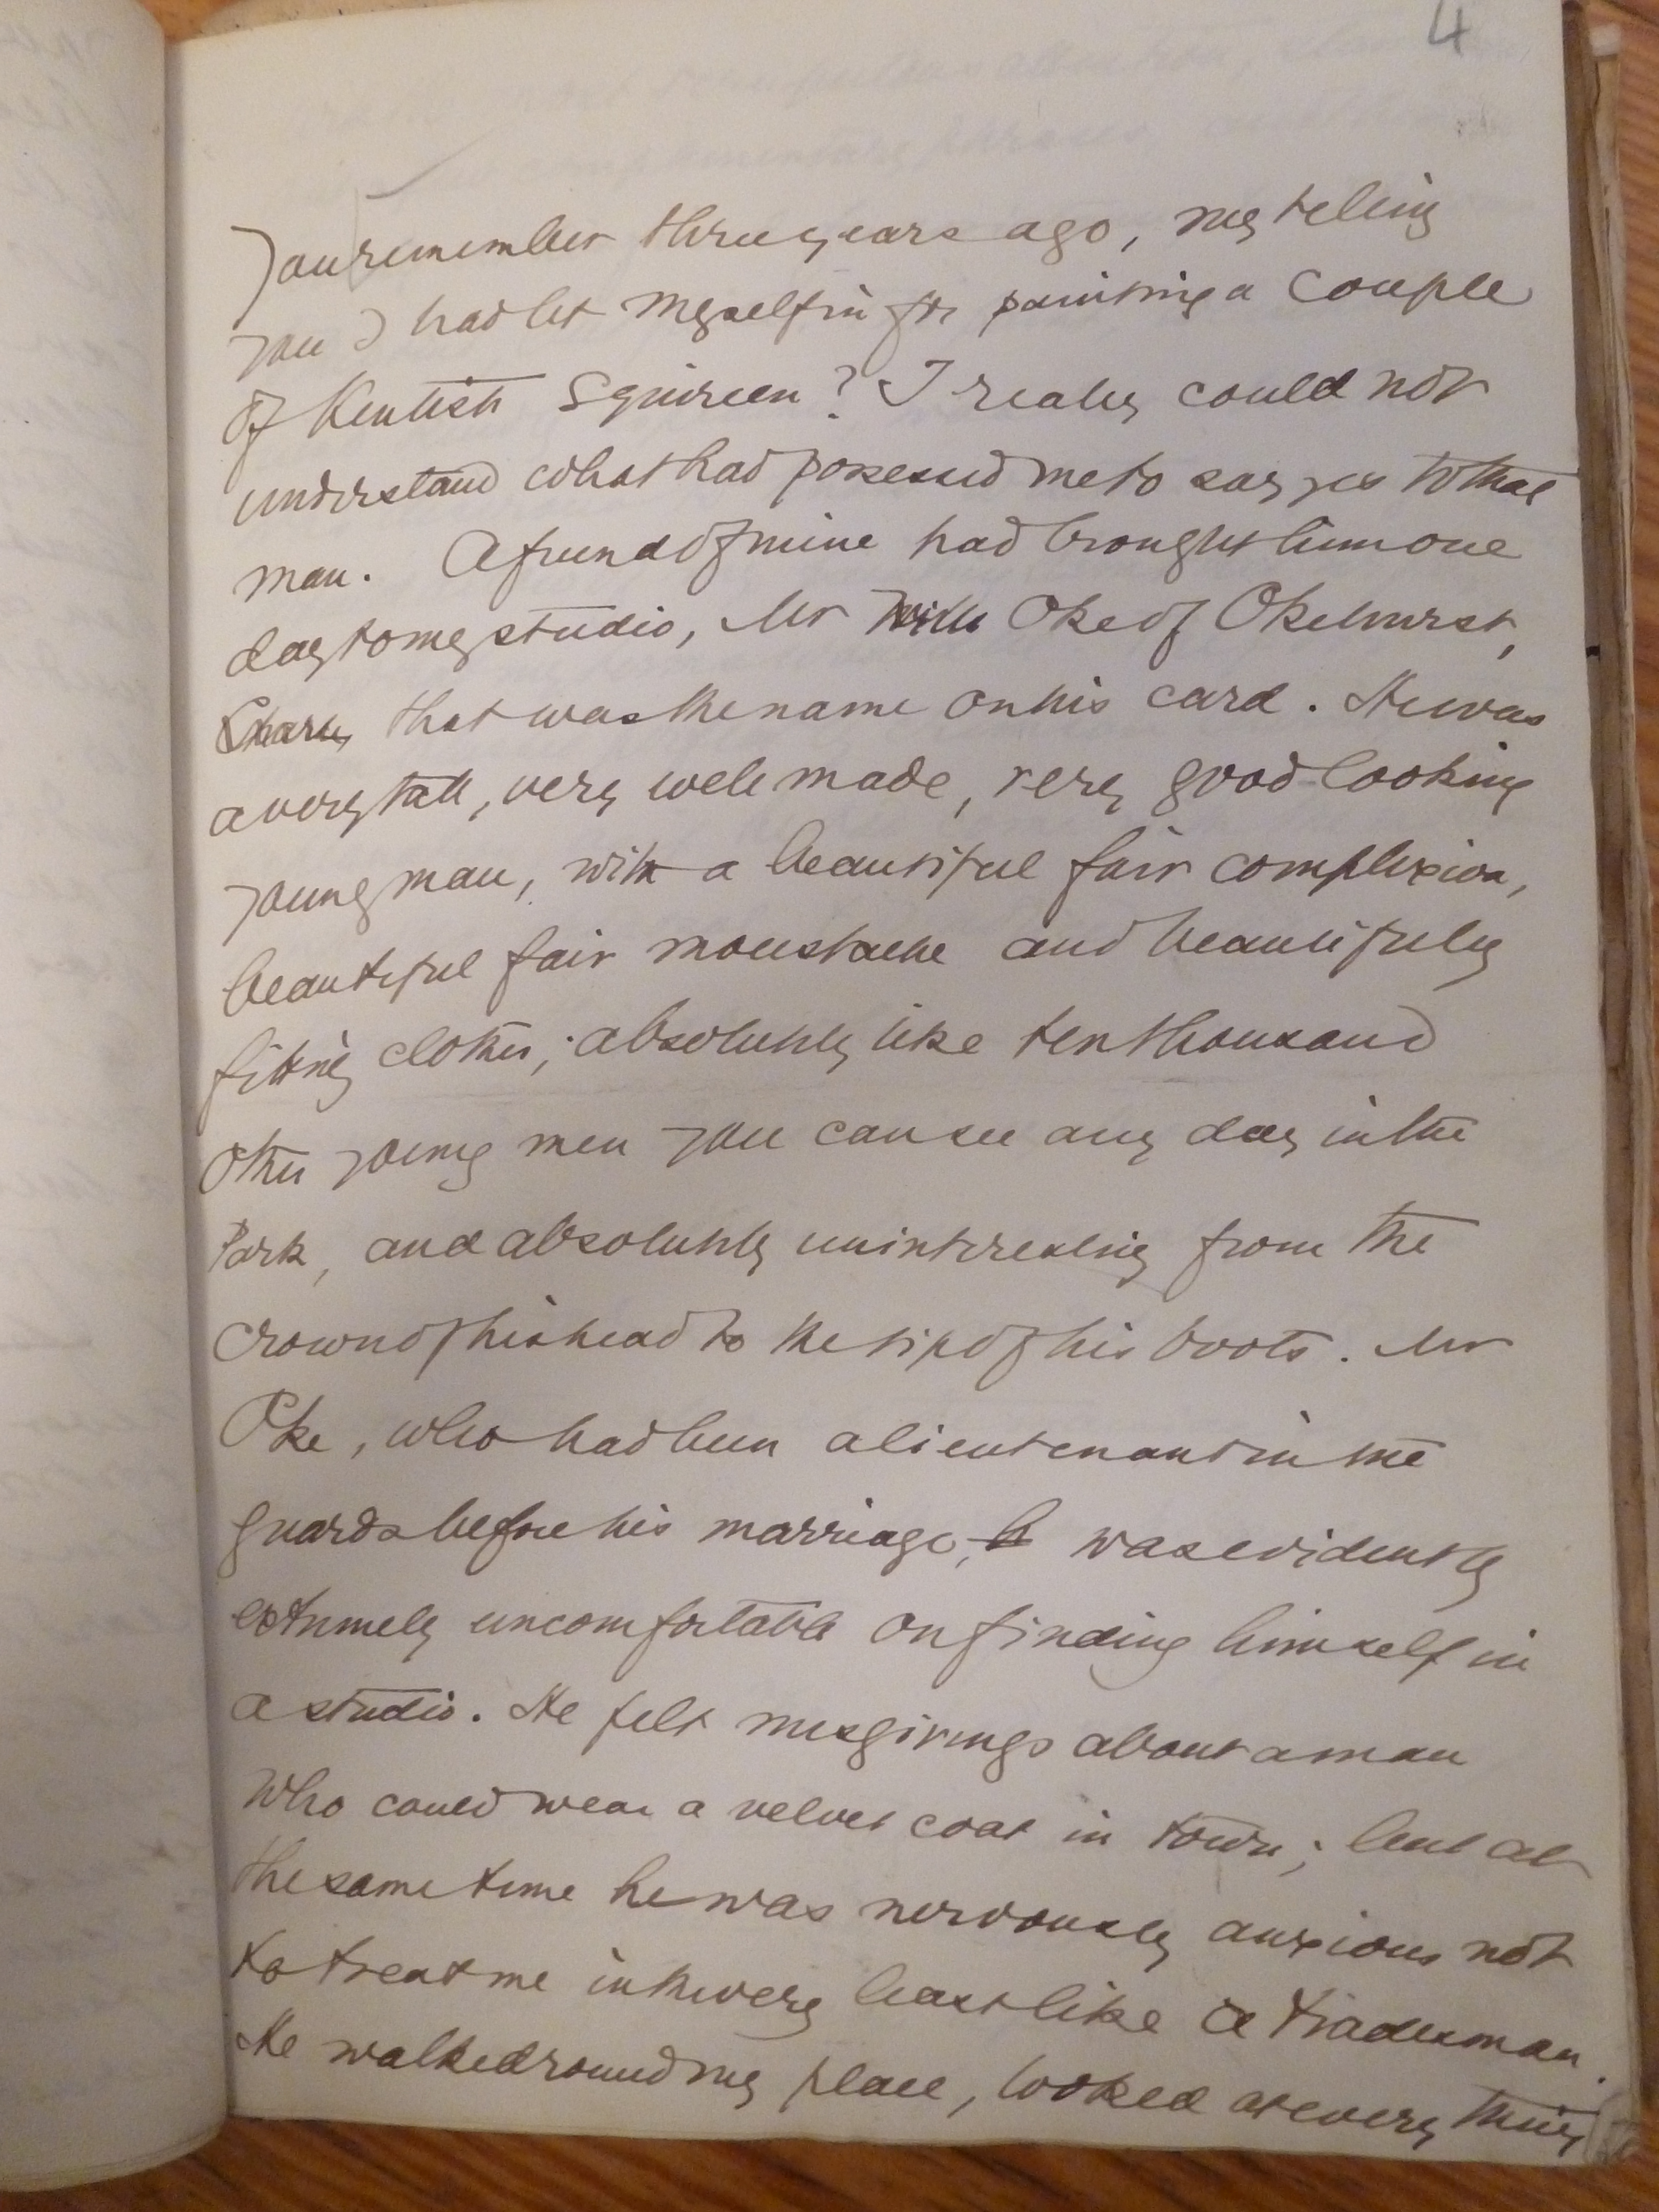 4
You remember three years ago, my telling
you I had let myself in for painting a couple
of Kentish Squireen? I really could not
understand what had posessed me to say yes to that
man. A friend of mine had brought him one
day to my studio, Mr Oke of Okehurst,
that was the name on his card. He was
a very tall, very well made, very good looking
young man, with a beautiful fair complexion,
beautiful fair moustache and beautifully
fitting clothes; absolutely like ten thousand
other young men you can see any day in the
Park, and absolutely uninteresting from the
crown of his head to the tip of his boots. Mr
Oke, who had been a lieutenant in the
guards before his marriage, was evidently
extremely uncomfortable on finding himself in
a studio. He felt misgivings about a man
who could wear a velvet coat in town; but at
the same time he was nervously anxious not
to treat me in the very least like a tradesman.
He walked round my place, looked at every thing